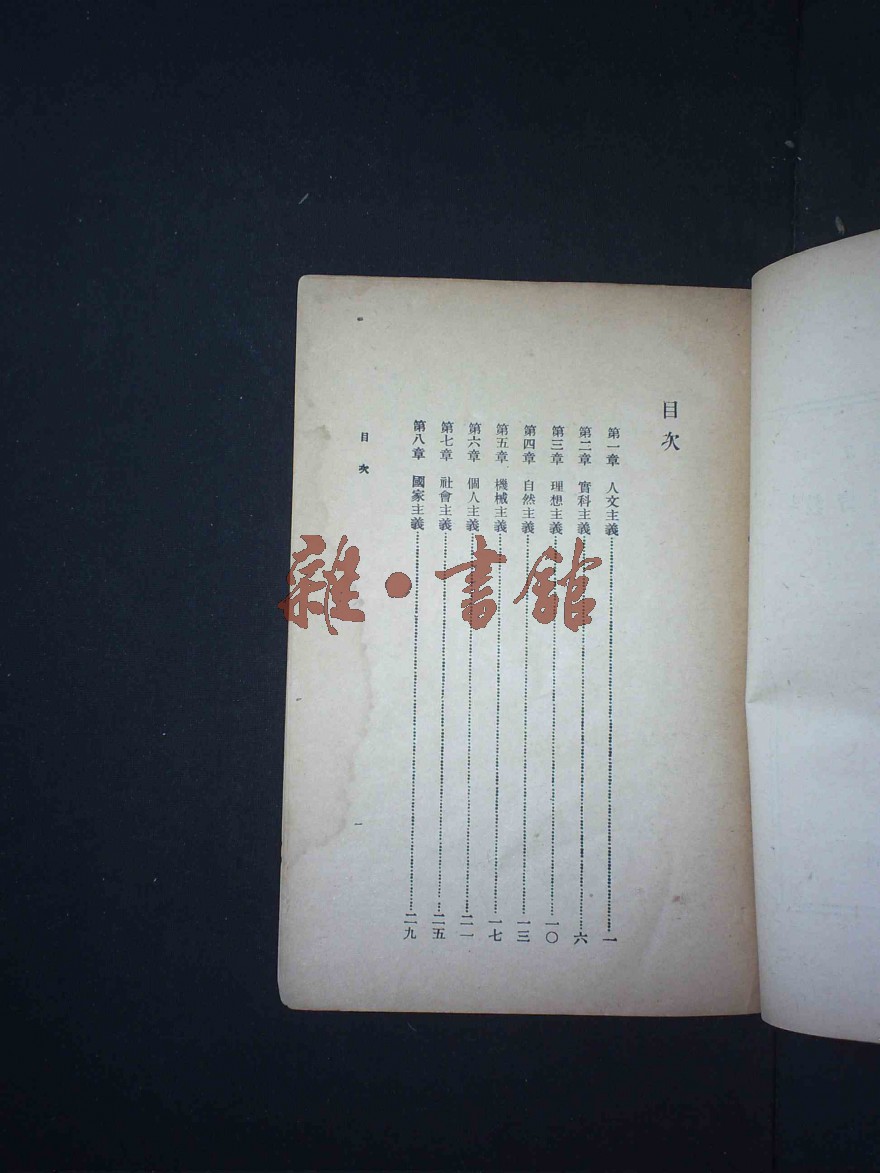 目次
第一章 人文主義……一
第二章 實科主義……六
第三章 理想主義……一〇
第四章 自然主義……一三
第五章 機械主義……一七
第六章 個人主義……二一
第七章 社會主義……二五
第八章 國家主義……二九
目次
一
雜·書館